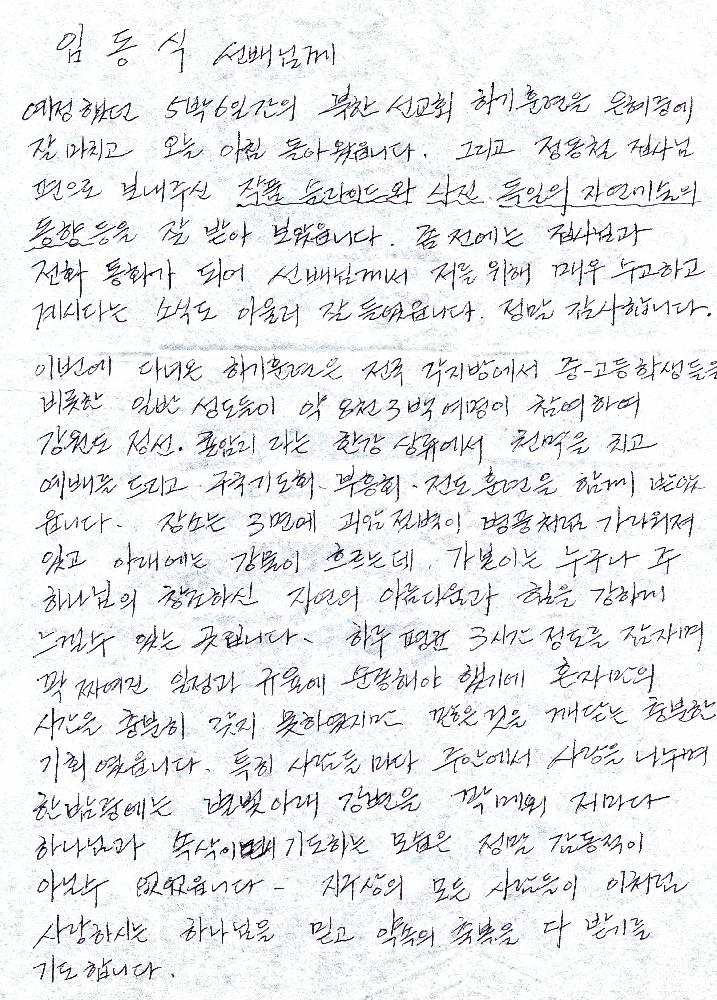 임동식 선배님께
예정했던 5박6일간의 북한선교회 하기훈련을 은혜중에
잘 마치고 오늘 아침 돌아왔읍니다. 그리고 정동철 집사님
편으로 보내주신 작품 슬라이드와 사진 독일의 자연미술의
동향등을 잘 받아 보았읍니다. 좀전에는 집사님과
전화 통화가 되어 선배님께서 저를 위해 매우 수고하고
계시다는 소식도 아울러 잘 들었읍니다. 정말 감사합니다.
이번에 다녀온 하기훈련은 전국 각지방에서 중·고등학생들을
비롯한 일반 성도들이 약 8천3백여명이 참여하여
강원도 정선. 라는 한강 상류에서 천막을 치고
예배를 드리고 구국기도회. 부흥회. 전도훈련을 함께 받았
읍니다. 장소는 3면에 절벽이 병풍처럼 가리워져
있고 아래에는 강물이 흐르는데. 가본이는 누구나 주
하나님의 창조하신 자연의 아름다움과 힘을 강하게
느낄수 있는 곳입니다. 하루 평균 3시간 정도를 잠자며
꽉 짜여진 일정과 규율에 순종해야 했기에 혼자만의
시간을 충분히 갖지 못하였지만 많은것을 깨닫는 충분한
기회였읍니다. 특히 사람들마다 주안에서 사랑을 나누며
한밤중에는 별빛아래 강변을 꽉메워 제마다
하나님과 속삭이며 기도하는 모습은 정말 감동적이
아닐수 없었읍니다 - 지구상의 모든 사람들이 이처럼
사랑하시는 하나님을 믿고 약속의 축복을 다 받기를
기도합니다.